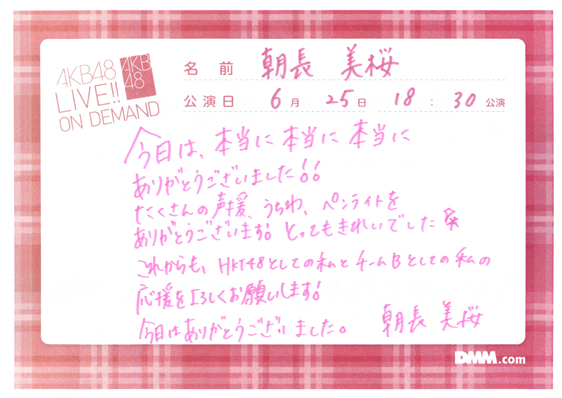 AKB48
LIVE!!
ON DEMAND
AKB
48
名前 朝長 美桜
公演日 6月 25日 18:30 公演
今日は、本当に 本当に 本当に
ありがとうございました!!
たくさんの声援、うちわ、ペンライトを
ありがとうございます! とってもきれいでした
これからも、HKT48としての私とチームBとしての私の
応援をよろしくお願いします!
今日はありがとうございました。 朝長 美桜
DMM.com